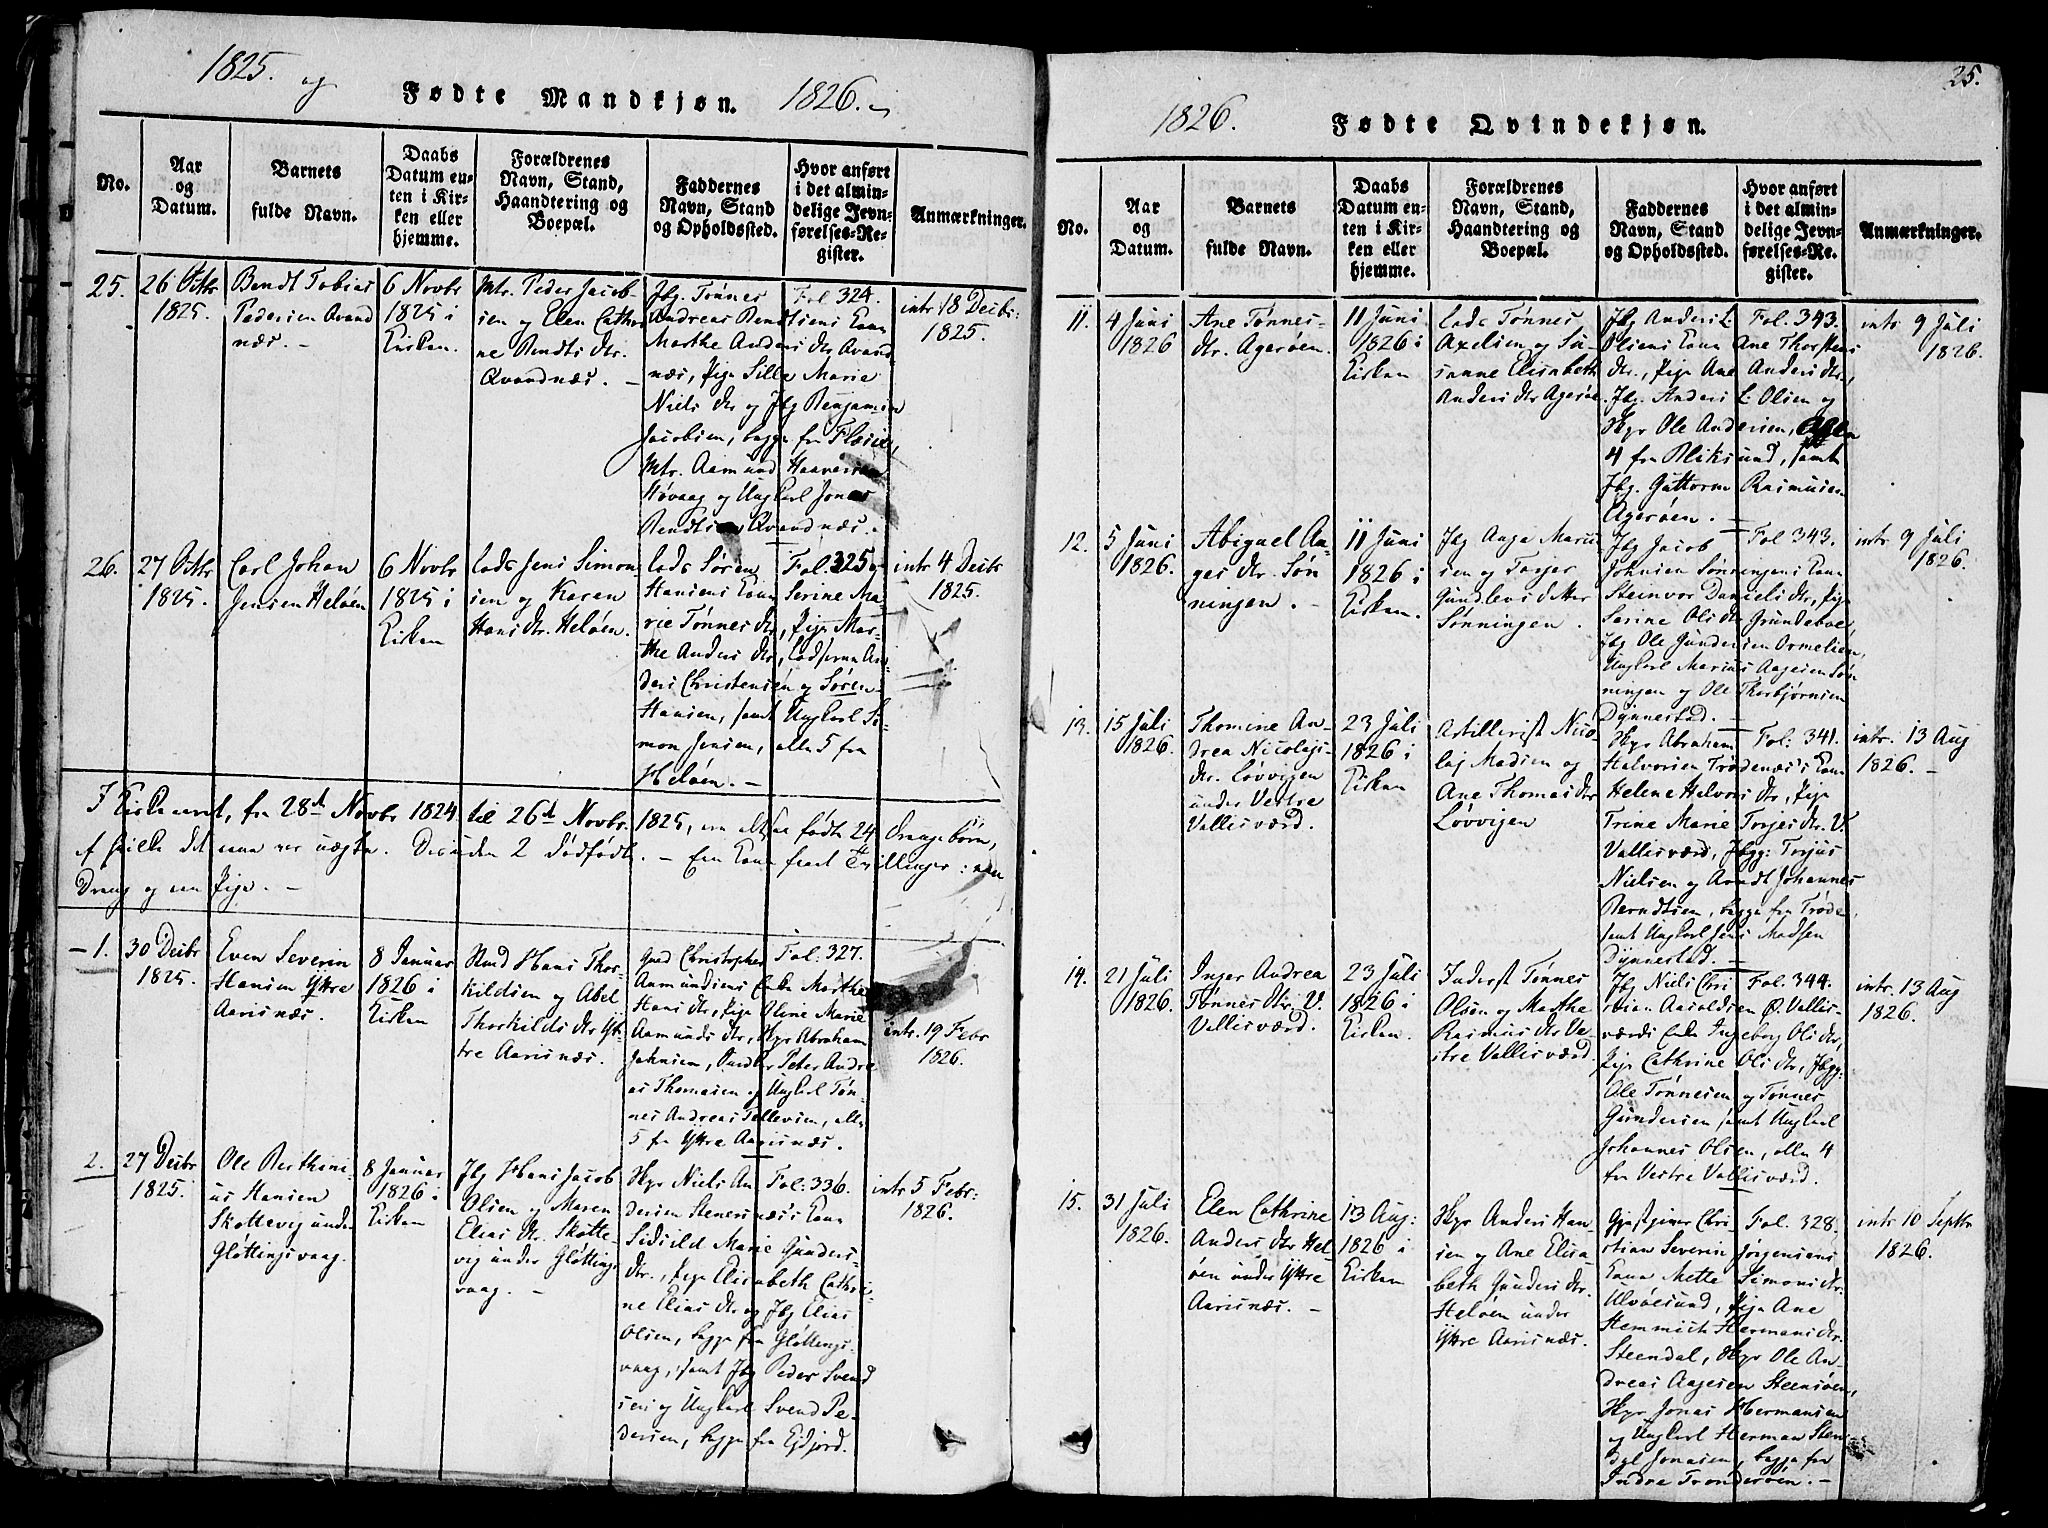 1825. og
Fødte Mandkjøn.
1826.
No.
Aar
og
Datum.
Barnets
fulde Navn.
Daabs
Datum en-
ten i Kir-
ken eller
hjemme.
Forældrenes
Navn, Stand,
Haandtering og
Boepæl.
Faddernes
Navn, Stand
og Opholdssted.
Hvor anført
i det almin-
delige Jevn-
førelses-Re-
gister.
Anmærkninger.
25.
26 Octbr
1825.
Bendt Tobias
Pedersen Qvand
næs.
6 Novbr
1825 i
Kirken.
Mtr. Peder Jacob-
sen og Elen Cathri
ne Bendts dtr.
Qvandnæs.
Jbg. Tønnes
Andreas Bendtsens Kone
Marthe Anders dtr Qvand
næs, Pige Sille Marie
Niels dtr og Jbg Benjamin
Jacobsen, begge fra
Mtr. Aamund Haaversen
Høvaag og Ungkarl Jonas
Bendtsen Qvandnæs.
Fol 324.
intr 18 Decbr:
1825.
26.
27 Octbr
1825.
Carl Johan
Jensen Heløen
6 Novbr
1825 i
Kirken
Lods Jens Simon
sen og Karen
Hans dtr. Heløen.
Lods Søren
Hansens Kone Serine Ma
rie Tønnes dtr, Pige Mar-
the Anders dtr, Lodserne An
ders Christensen og Søren
Hansen, samt Ungkarl Si-
mon Jensen, alle 5 fra
Heløen.
Fol. 325
intr 4 Decbr
1825.
I Kirkeaaret, fra 28d Novbr 1824 til 26d Novbr. 1825, ere altsaa fødte 24 Drengebørn,
af hvilke det ene var uægte. Desuden 2 dødfødte. - En Kone fræd Tvillinger: een
Dreng og een Pige.
1.
30 Decbr
1825.
Even Severin
Hansen Ytre
Aarisnæs.
8 Januar
1826 i
Kirken
Hans Thor-
kildsen og Abel
Thorkilds dtr Yt-
tre Aarisnæs.
Christopher
Aamundsens Enke Marthe
Hans dtr, Pige Oline Marie
Aamunds dtr, Skpr Abraham
Johnsen, Peter Andre
as Thomasen og Ungkarl Tøn-
nes Andreas Tellevsen, alle
5 fra Yttre Aarisnæs.
Fol. 327.
intr. 19 Febr
1826.
2.
27 Decbr
1825.
Ole Berthini-
us Hansen
Skottevig under
Gløttingsvaag.
8 Januar
1826 i
Kirken
Jbg Hans Jacob
Olsen og Maren
Elias dtr. Skotte-
vig under Gløttings
vaag.
Skpr Niels An
dersen Stenesnæs's Kone
Sidsild Marie Gunders
dtr., Pige Elisabeth Cathri-
ne Elias dtr og Jbg Elias
Olsen, begge fra Gløttings-
vaag, samt Jbg Peder Svend
sen og Ungkarl Svend Pe-
dersen, begge fra Ejdjord.
Fol: 336.
intr 5 Febr:
1826.
25.
1826.
Fødte Qvindekjøn.
No.
Aar
og
Datum.
Barnets
fulde Navn.
Daabs
Datum en-
ten i Kir-
ken eller
hjemme.
Forældrenes
Navn, Stand,
Haandtering og
Boepæl.
Faddernes
Navn, Stand
og Opholdssted.
Hvor anført
i det almin-
delige Jevn-
førelses-Re-
gister.
Anmærkninger.
11.
4 Juni
1826
Ane Tønnes-
dtr. Agerøen.
11 Juni
1826 i
Kirken
Lods Tønnes
Axelsen og Su-
sanne Elisabeth
Anders dtr Agerøe.
Jbg Anders L.
Olsens Kone Ane Thorstens
dtr., Pige Ane Anders dtr.,
Jbg. Anders L. Olsen og
Skpr Ole Andersen, alle
4 fra Bliksund, samt
Jbg. Guttorm Rasmusen
Agerøen.
Fol. 343.
intr 9 Juli
1826.
12.
5 Juni
1826.
Abigael An-
ges dtr. Søn
ningen.
11 Juni
1826 i
Kirken.
Jbg Aage Marius
sen og Torjer
Gundlevs datter
Sønningen.
Jbg Jacob
Johnsen Sønningens Kone
Steinvor Daniels dtr, Pige
Serine Ols dtr Grundeboe,
Jbg Ole Gundersen Ormelien,
Ungkarl Marius Aagesen Søn
ningen og Ole Thorbjørnsen
Dynnestad.
Fol 343.
intr. 9 Juli
1826.
13.
15 Juli
1826.
Thomine An
drea Nicolajs-
dtr. Løvvigen
under Vestre
Vallisværd.
23 Juli
1826 i
Kirken
Artillerist Nico
laj Madsen og
Ane Thomas dtr
Løvvigen
Skpr Abraham
Halvorsen Trødenæs's Kone
Helene Helvors dtr, Pige
Trine Marie Torjes dtr. V.
Vallisværd, Jbgg: Torjus
Nielsen og Arndt Johannes
Berndtsen, begge fra Trøde
samt Ungkarl Jens Madsen
Dynnestad.
Fol: 341.
intr. 13 Aug
1826.
14.
21 Juli
1826.
Inger Andrea
Tønnes dtr. V.
Vallisværd.
23 Juli
1826 i
Kirken.
Inderst Tønnes
Olsen og Marthe
Rasmus dtr Ve-
stre Vallisværd.
Jbg Niels Chri
stian Aasoldsen Ø. Vallis-
værds Enke Ingeborg Ols dtr,
Pige Cathrine Ols dtr, Jbgg:
Ole Tønnesen og Tønnes
Gundersen samt Ungkarl
Johannes Olsen, alle 4
fra Vestre Vallisværd.
Fol. 344.
intr. 13 Aug
1826.
15.
31 Juli
1826.
Elen Cathrine
Anders dtr Hel-
øen under Yttre
Aarisnæs.
13 Aug:
1826 i
Kirken
Skpr Anders Han
sen og Ane Elisa
beth Gunders dtr.
Heløen under
Yttre Aarisnæs.
Gjæstgiver Chri
stian Severin Jørgensens
Kone Mette Simons dtr.
Ulvøesund, Pige Ane
Hemmich Hermans dtr.
Steendal, Skpr Ole An-
dreas Aagesen Steensøen,
Skpr Jonas Hermansen
og Ungkarl Herman Steen
dal Jonasen, begge fra
Indre Trønderøen.
Fol. 328.
intr 10 Septbr
1826.